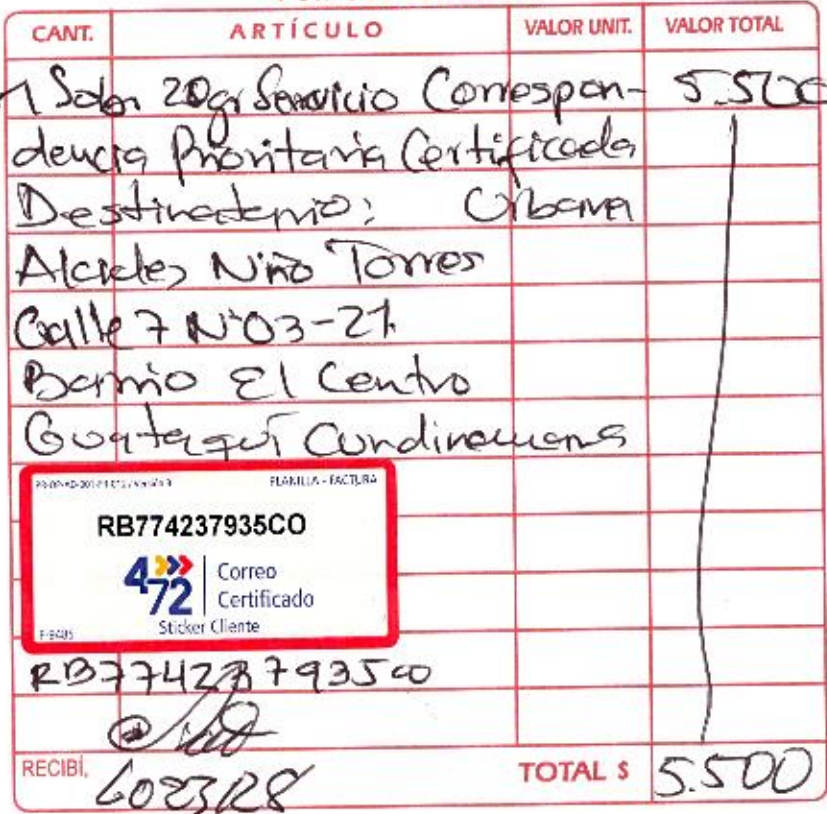 CANT. ARTÍCULO VALOR UNIT. VALOR TOTAL
1 Sobre 20gr Servicio Correspon- 5.500
dencia Prioritaria Certificada
Destinatario: Urbana
Alcides Niño Torres
Calle 7 N°03-21
Barrio El Centro
Guataquí Cundinamarca
PLANILLA - FACTURA
RB774237935CO
472 Correo
Certificado
Sticker Cliente
RB774237935CO
RECIBÍ,
TOTAL $ 5.500